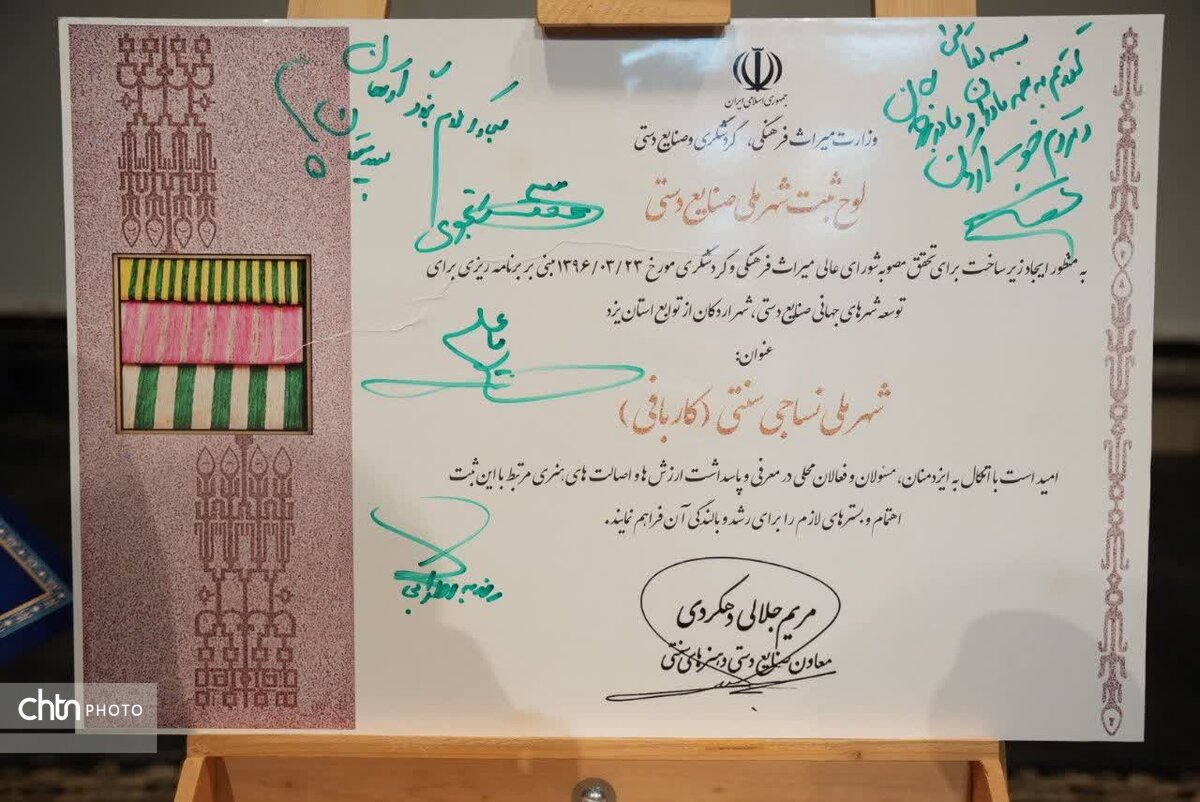 جمهوری اسلامی ایران
وزارت میراث فرهنگی، گردشگری و صنایع دستی
لوح ثبت شهر ملی صنایع دستی
به منظور ایجاد زیر ساخت برای تحقق مصوبه شورای عالی میراث فرهنگی و گردشگری مورخ ۱۳۹۶/۰۳/۲۳ مبنی بر برنامه ریزی برای
توسعه شهرهای جهانی صنایع دستی، شهر اردکان از توابع استان یزد
عنوان:
شهر ملی نساجی سنتی (کاربافی)
امید است با اتکال به ایزد منان، مسئولان و فعالان محلی در معرفی و پاسداشت ارزش ها و اصالت های هنری مرتبط با این ثبت
اهتمام و بسترهای لازم را برای رشد و بالندگی آن فراهم نمایند.
مریم جلالی دهکردی
معاون صنایع دستی و هنرهای سنتی
chtn PHOTO